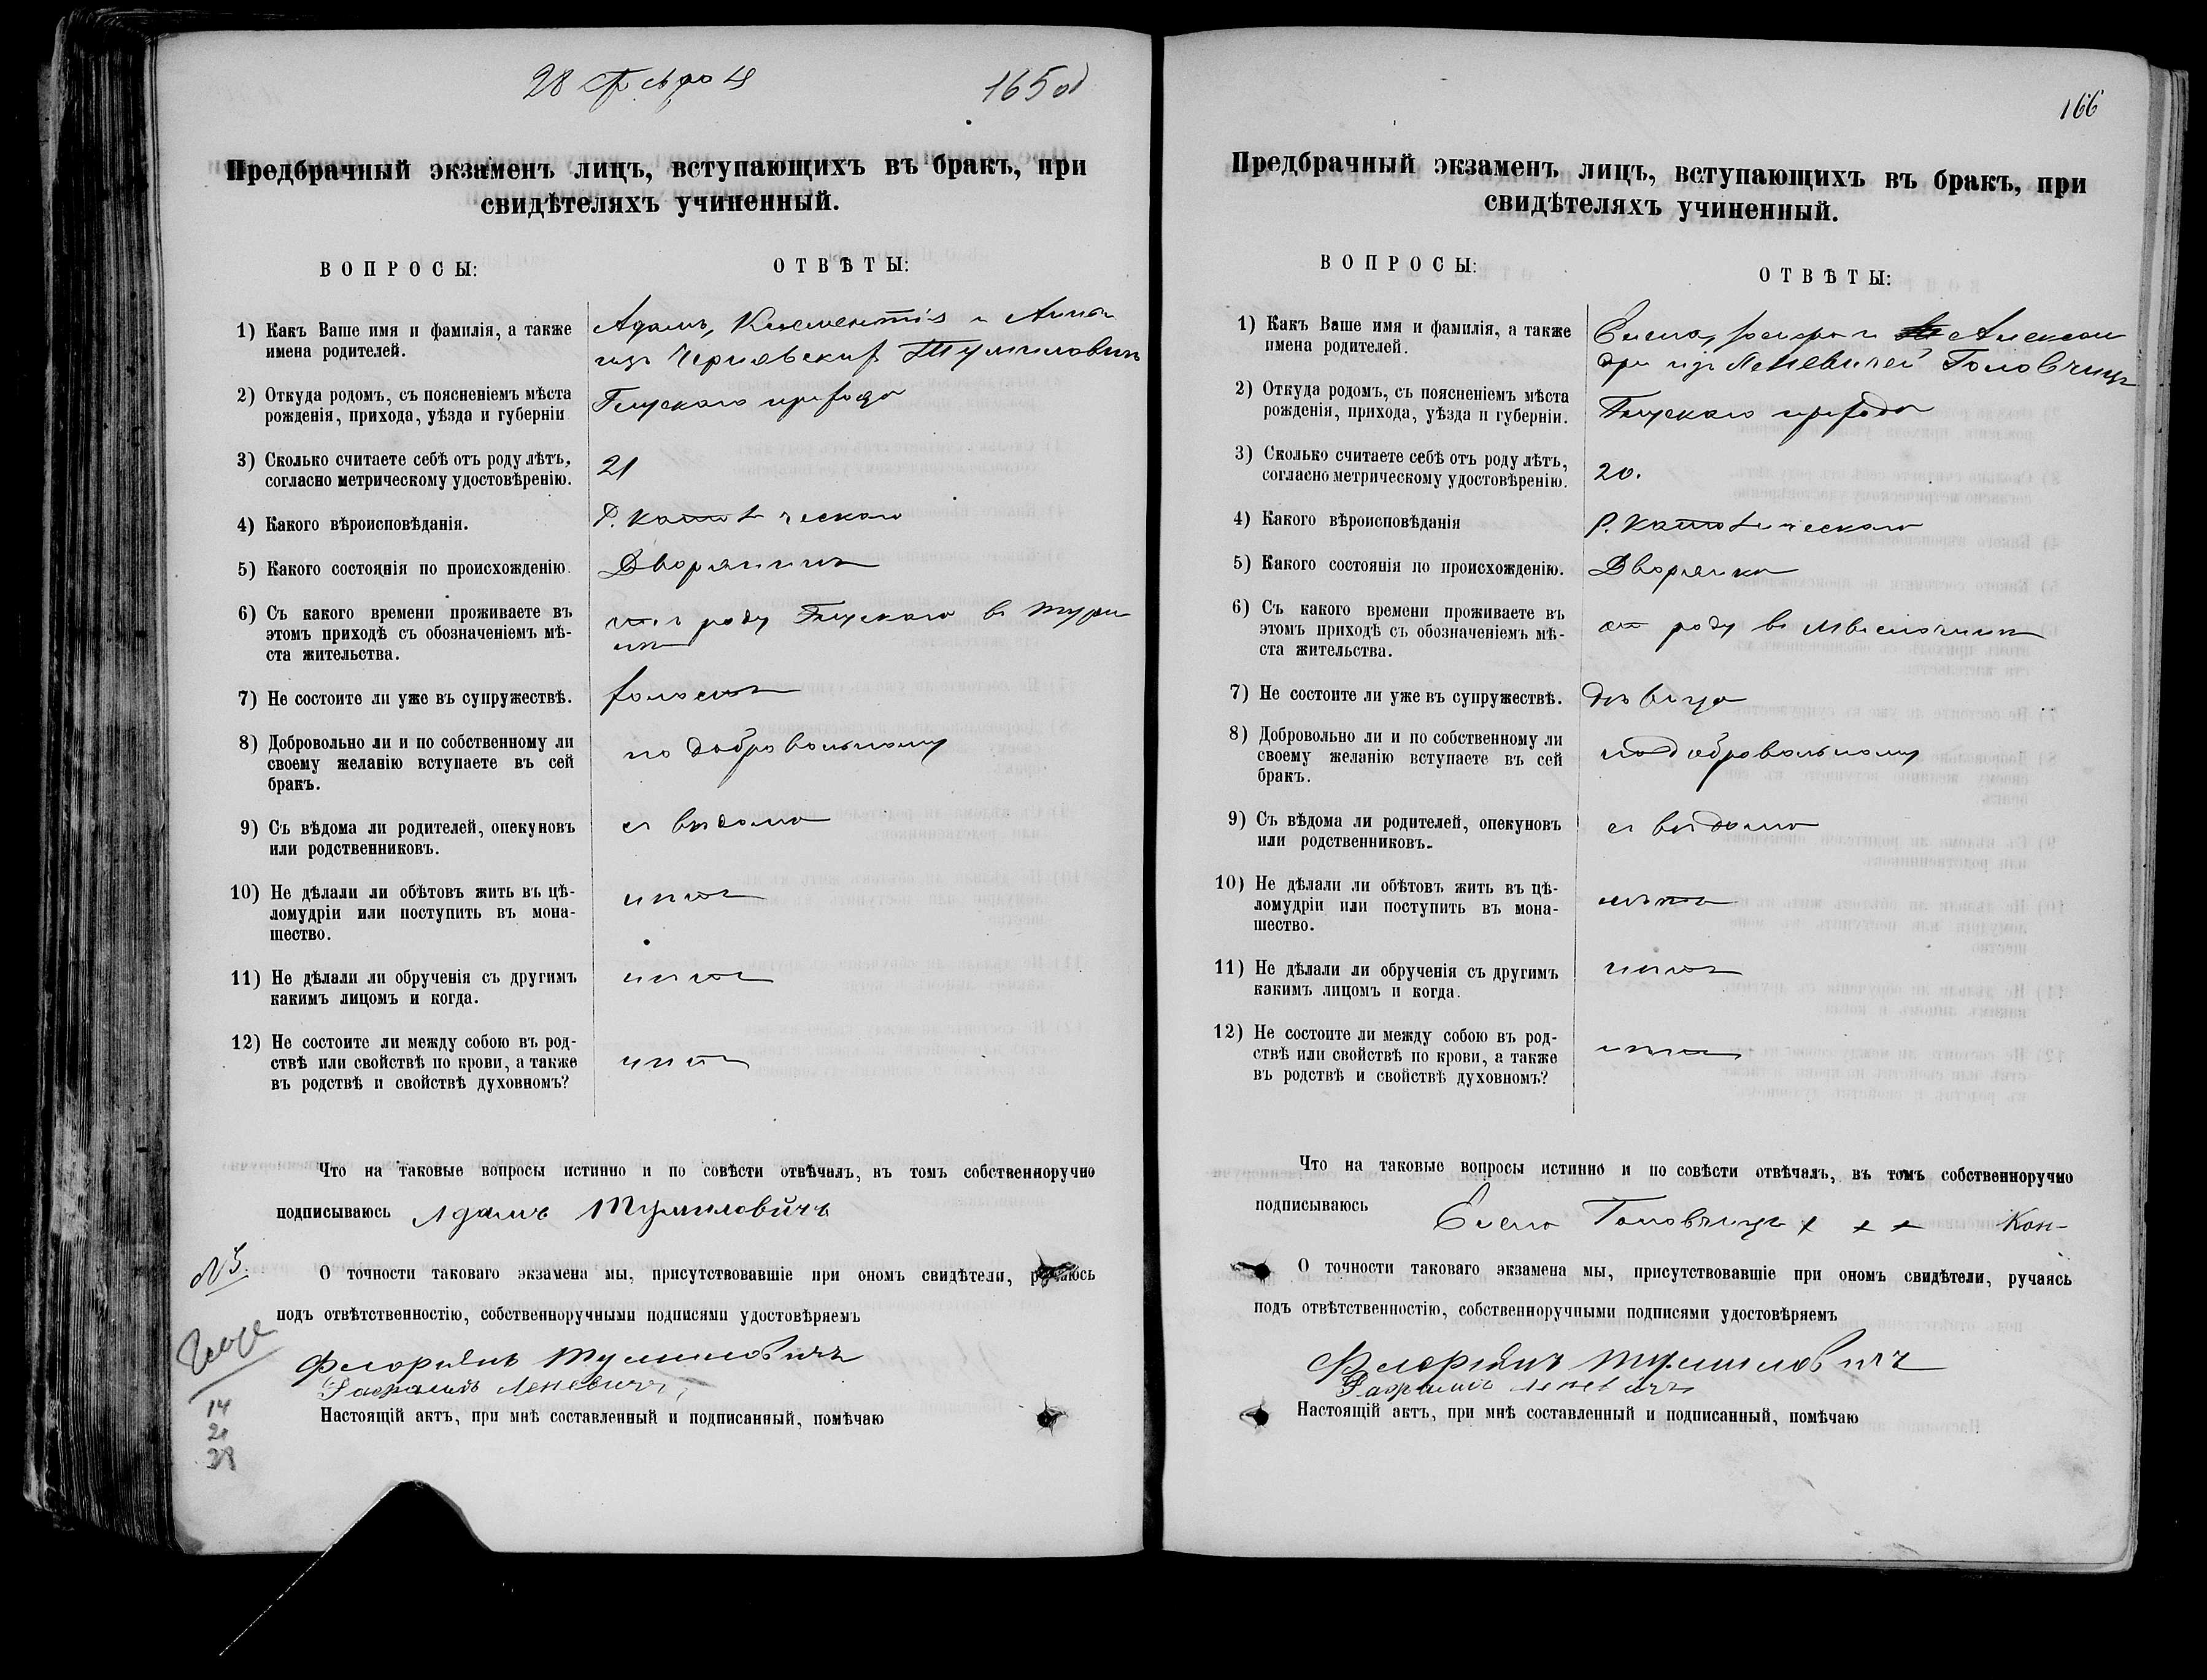 28 Февраля
165 об
Предбрачный экзаменъ лицъ, вступающихъ въ бракъ, при
свидѣтеляхъ учиненный.
ВОПРОСЫ:
ОТВѢТЫ:
1) Какъ Ваше имя и фамилія, а также
имена родителей.
Адамъ, Клементій и Анна
изъ Чернявскихъ Тумиловичъ
2) Откуда родомъ, съ поясненіемъ мѣста
рожденія, прихода, уѣзда и губерніи
прихода
3) Сколько считаете себѣ отъ роду лѣтъ,
согласно метрическому удостовѣренію.
21
4) Какого вѣроисповѣданія.
Р. католическаго
5) Какого состоянія по происхожденію.
Дворянинъ
6) Съ какого времени проживаете въ
этомъ приходѣ съ обозначеніемъ мѣ-
ста жительства.
роду
7) Не состоите ли уже въ супружествѣ.
холостъ
8) Добровольно ли и по собственному ли
своему желанію вступаете въ сей
бракъ.
по добровольному
9) Съ вѣдома ли родителей, опекуновъ
или родственниковъ.
съ вѣдома
10) Не дѣлали ли обѣтовъ жить въ цѣ-
ломудріи или поступить въ мона-
шество.
нѣтъ
11) Не дѣлали ли обрученія съ другимъ
какимъ лицомъ и когда.
нѣтъ
12) Не состоите ли между собою въ род-
ствѣ или свойствѣ по крови, а также
въ родствѣ и свойствѣ духовномъ?
нѣтъ
Что на таковые вопросы истинно и по совѣсти отвѣчалъ, въ томъ собственноручно
подписываюсь Адамъ Тумиловичъ
О точности таковаго экзамена мы, присутствовавшіе при ономъ свидѣтели, ручаюсь
подъ отвѣтственностію, собственноручными подписями удостовѣряемъ
Флоріянъ Тумиловичъ
Леневичъ
Настоящій актъ, при мнѣ составленный и подписанный, помѣчаю
14
21
28
166
Предбрачный экзаменъ лицъ, вступающихъ въ бракъ, при
свидѣтеляхъ учиненный.
ВОПРОСЫ:
ОТВѢТЫ:
1) Какъ Ваше имя и фамилія, а также
имена родителей.
Елена, и Алексан
дра изъ Леневичей Головчицъ
2) Откуда родомъ, съ поясненіемъ мѣста
рожденія, прихода, уѣзда и губерніи.
прихода
3) Сколько считаете себѣ отъ роду лѣтъ,
согласно метрическому удостовѣренію.
20.
4) Какого вѣроисповѣданія
Р. католическаго
5) Какого состоянія по происхожденію.
Дворянка
6) Съ какого времени проживаете въ
этомъ приходѣ съ обозначеніемъ мѣ-
ста жительства.
от роду въ
7) Не состоите ли уже въ супружествѣ.
дѣвица
8) Добровольно ли и по собственному ли
своему желанію вступаете въ сей
бракъ.
по добровольному
9) Съ вѣдома ли родителей, опекуновъ
или родственниковъ.
съ вѣдома
10) Не дѣлали ли обѣтовъ жить въ цѣ-
ломудріи или поступить въ мона-
шество.
нѣтъ
11) Не дѣлали ли обрученія съ другимъ
какимъ лицомъ и когда.
нѣтъ
12) Не состоите ли между собою въ род-
ствѣ или свойствѣ по крови, а также
въ родствѣ и свойствѣ духовномъ?
нѣтъ
Что на таковые вопросы истинно и по совѣсти отвѣчалъ, въ томъ собственноручно
подписываюсь Елена Головчицъ + + + Кон-
О точности таковаго экзамена мы, присутствовавшіе при ономъ свидѣтели, ручаясь
подъ отвѣтственностію, собственноручными подписями удостовѣряемъ
Флоріянъ Тумиловичъ
Леневичъ
Настоящій актъ, при мнѣ составленный и подписанный, помѣчаю